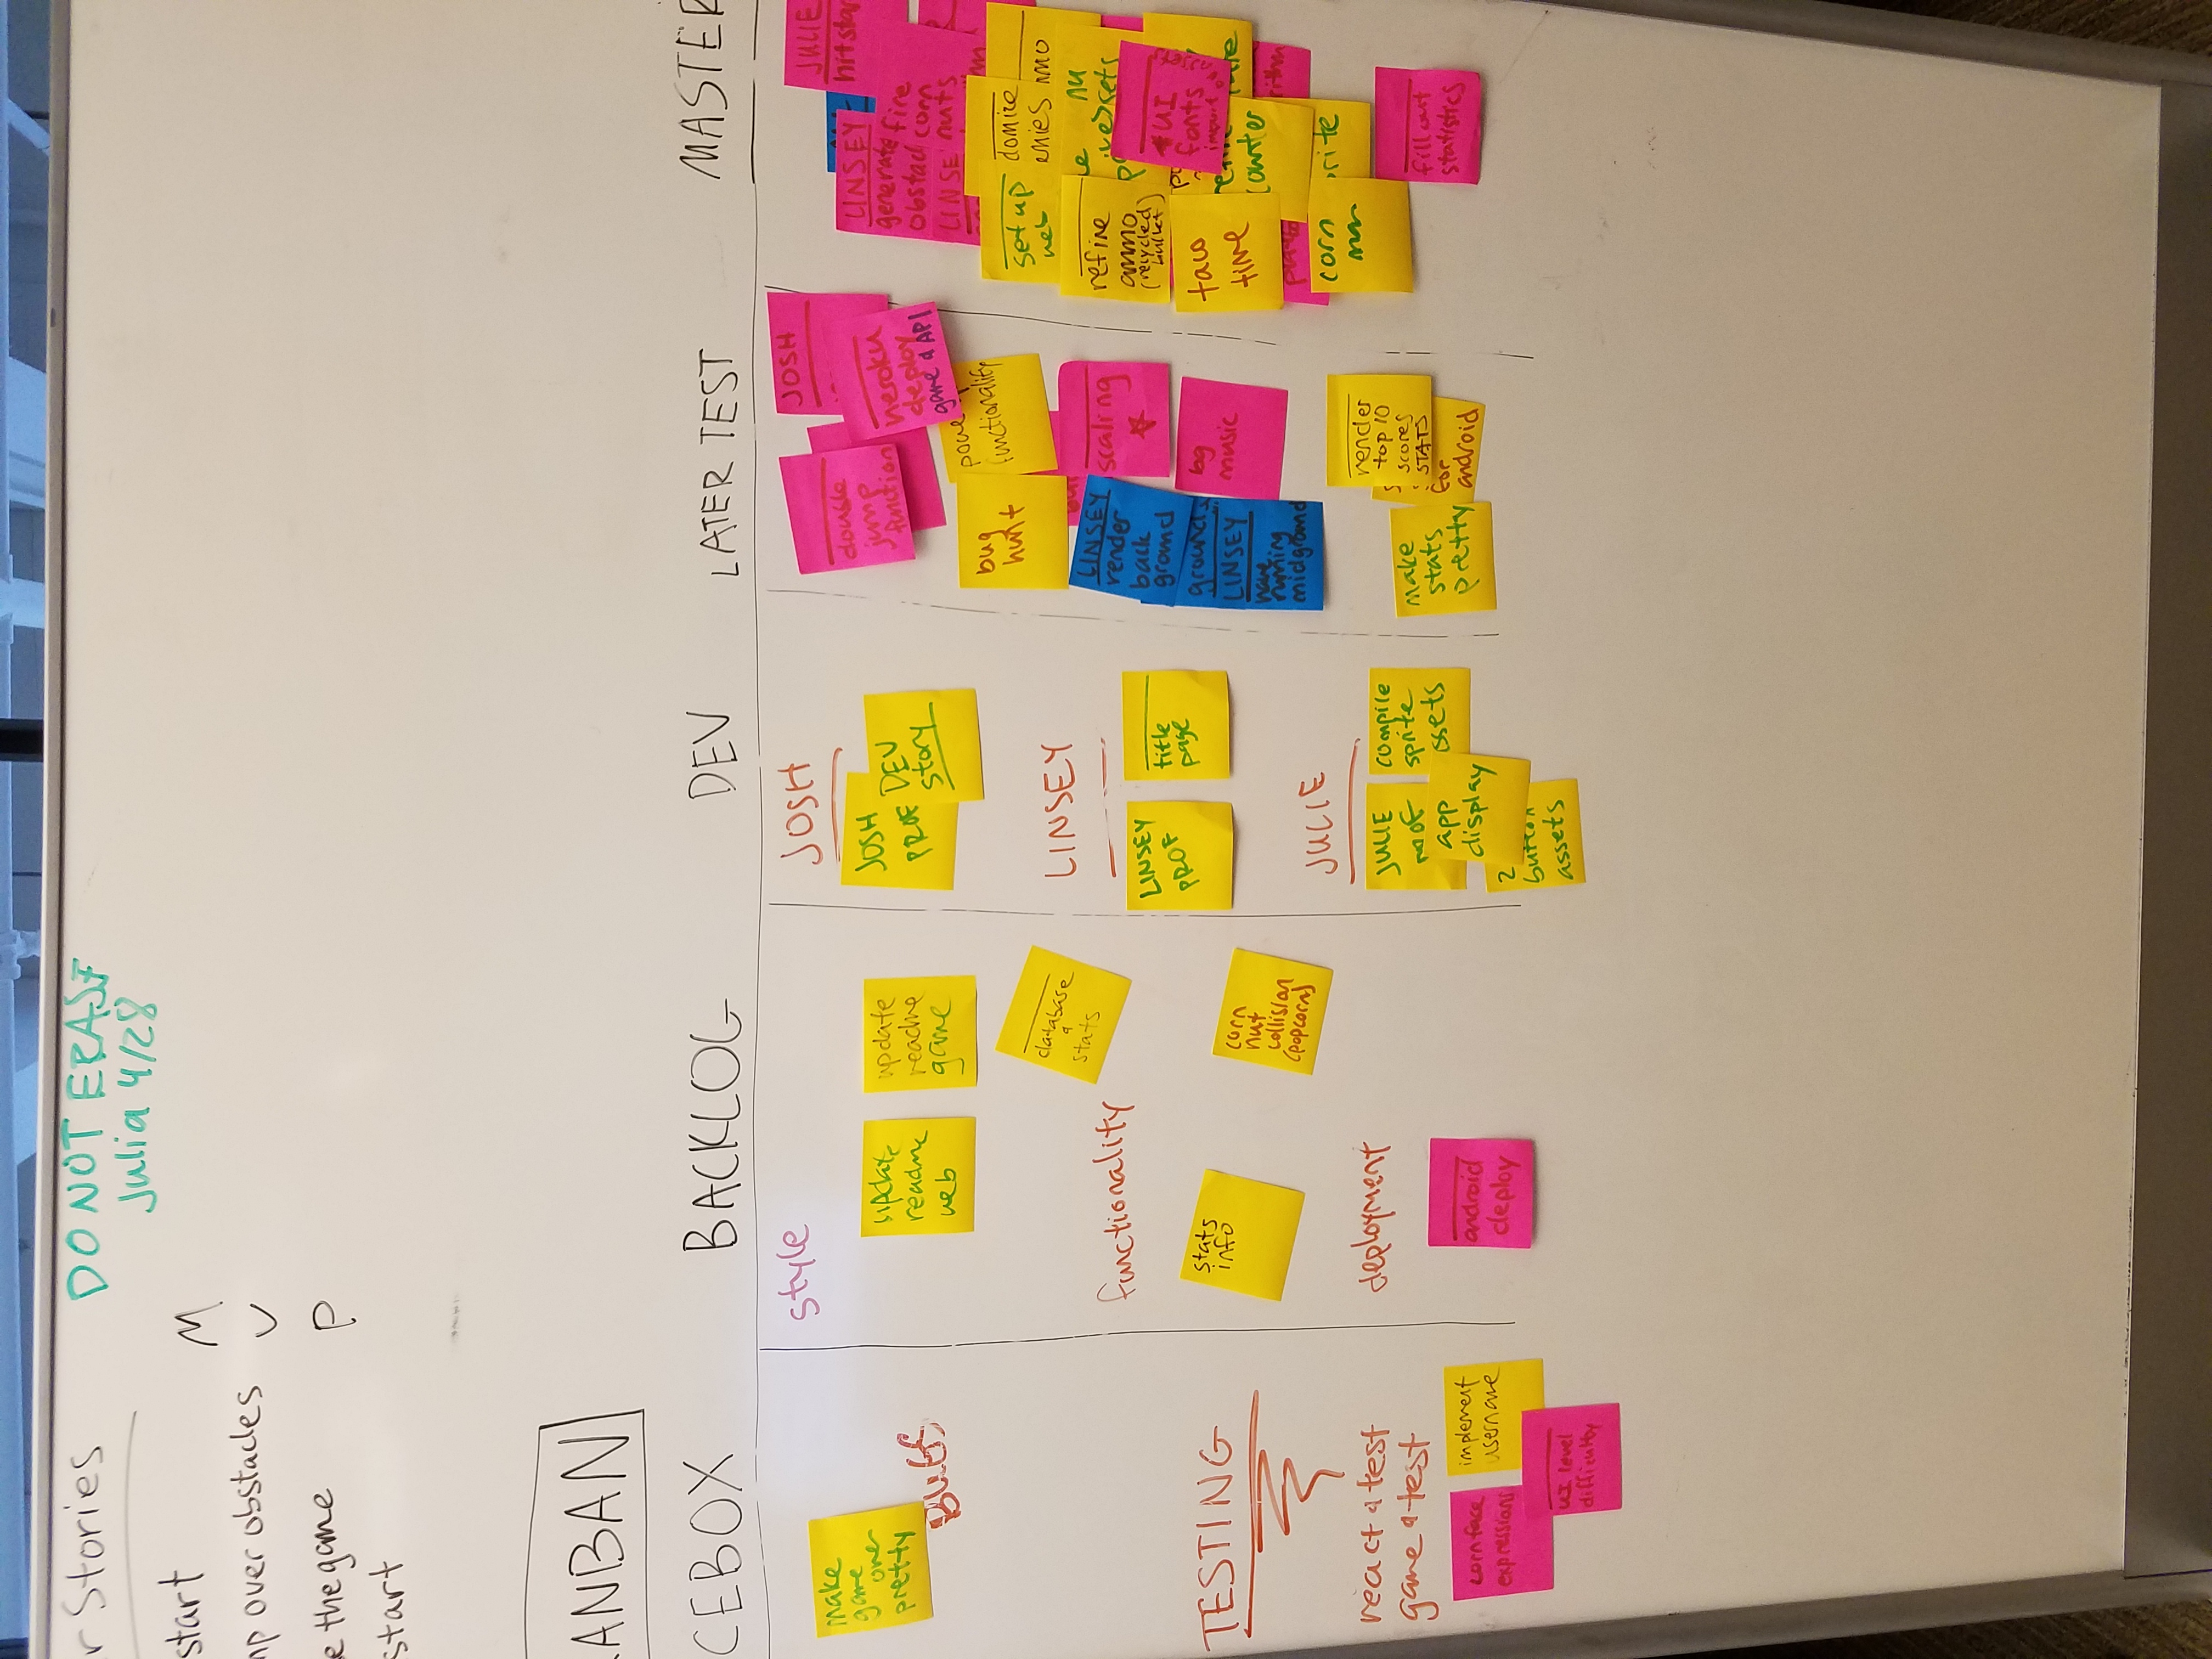 r Stories
DO NOT ERASE
Julia 4/28
start
M
mp over obstacles
V
e the game
P
start
KANBAN
CEBOX
BACKLOG
DEV
LATER TEST
MASTER
make
game
over
pretty
BUGS
TESTING
react & test
game & test
corn face
expressions
implement
username
UI level
difficulty
style
update
readme
web
update
readme
game
database
&
stats
functionality
stats
info
corn
nut
collision
(popcorn)
deployment
android
deploy
JOSH
JOSH
PROF
DEV
story
LINSEY
LINSEY
PROF
title
page
JULIE
JULIE
PROF
compile
sprite
assets
app
display
2
button
assets
double
jump
function
JOSH
heroku
deploy
game & API
bug
hunt
functionality
LINSEY
render
back
ground
scaling
ground
LINSEY
have
running
midground
bg
music
render
top 10
scores
STATS
make
stats
pretty
for
android
JULIE
hit star
LINSEY
generate
obstad
fire
corn
nuts
LINSE
set up
web
domize
emies
mmo
refine
ammo
(recycled
bullet)
UI
fonts
import
taco
time
counter
corn
man
rite
fill out
statistics